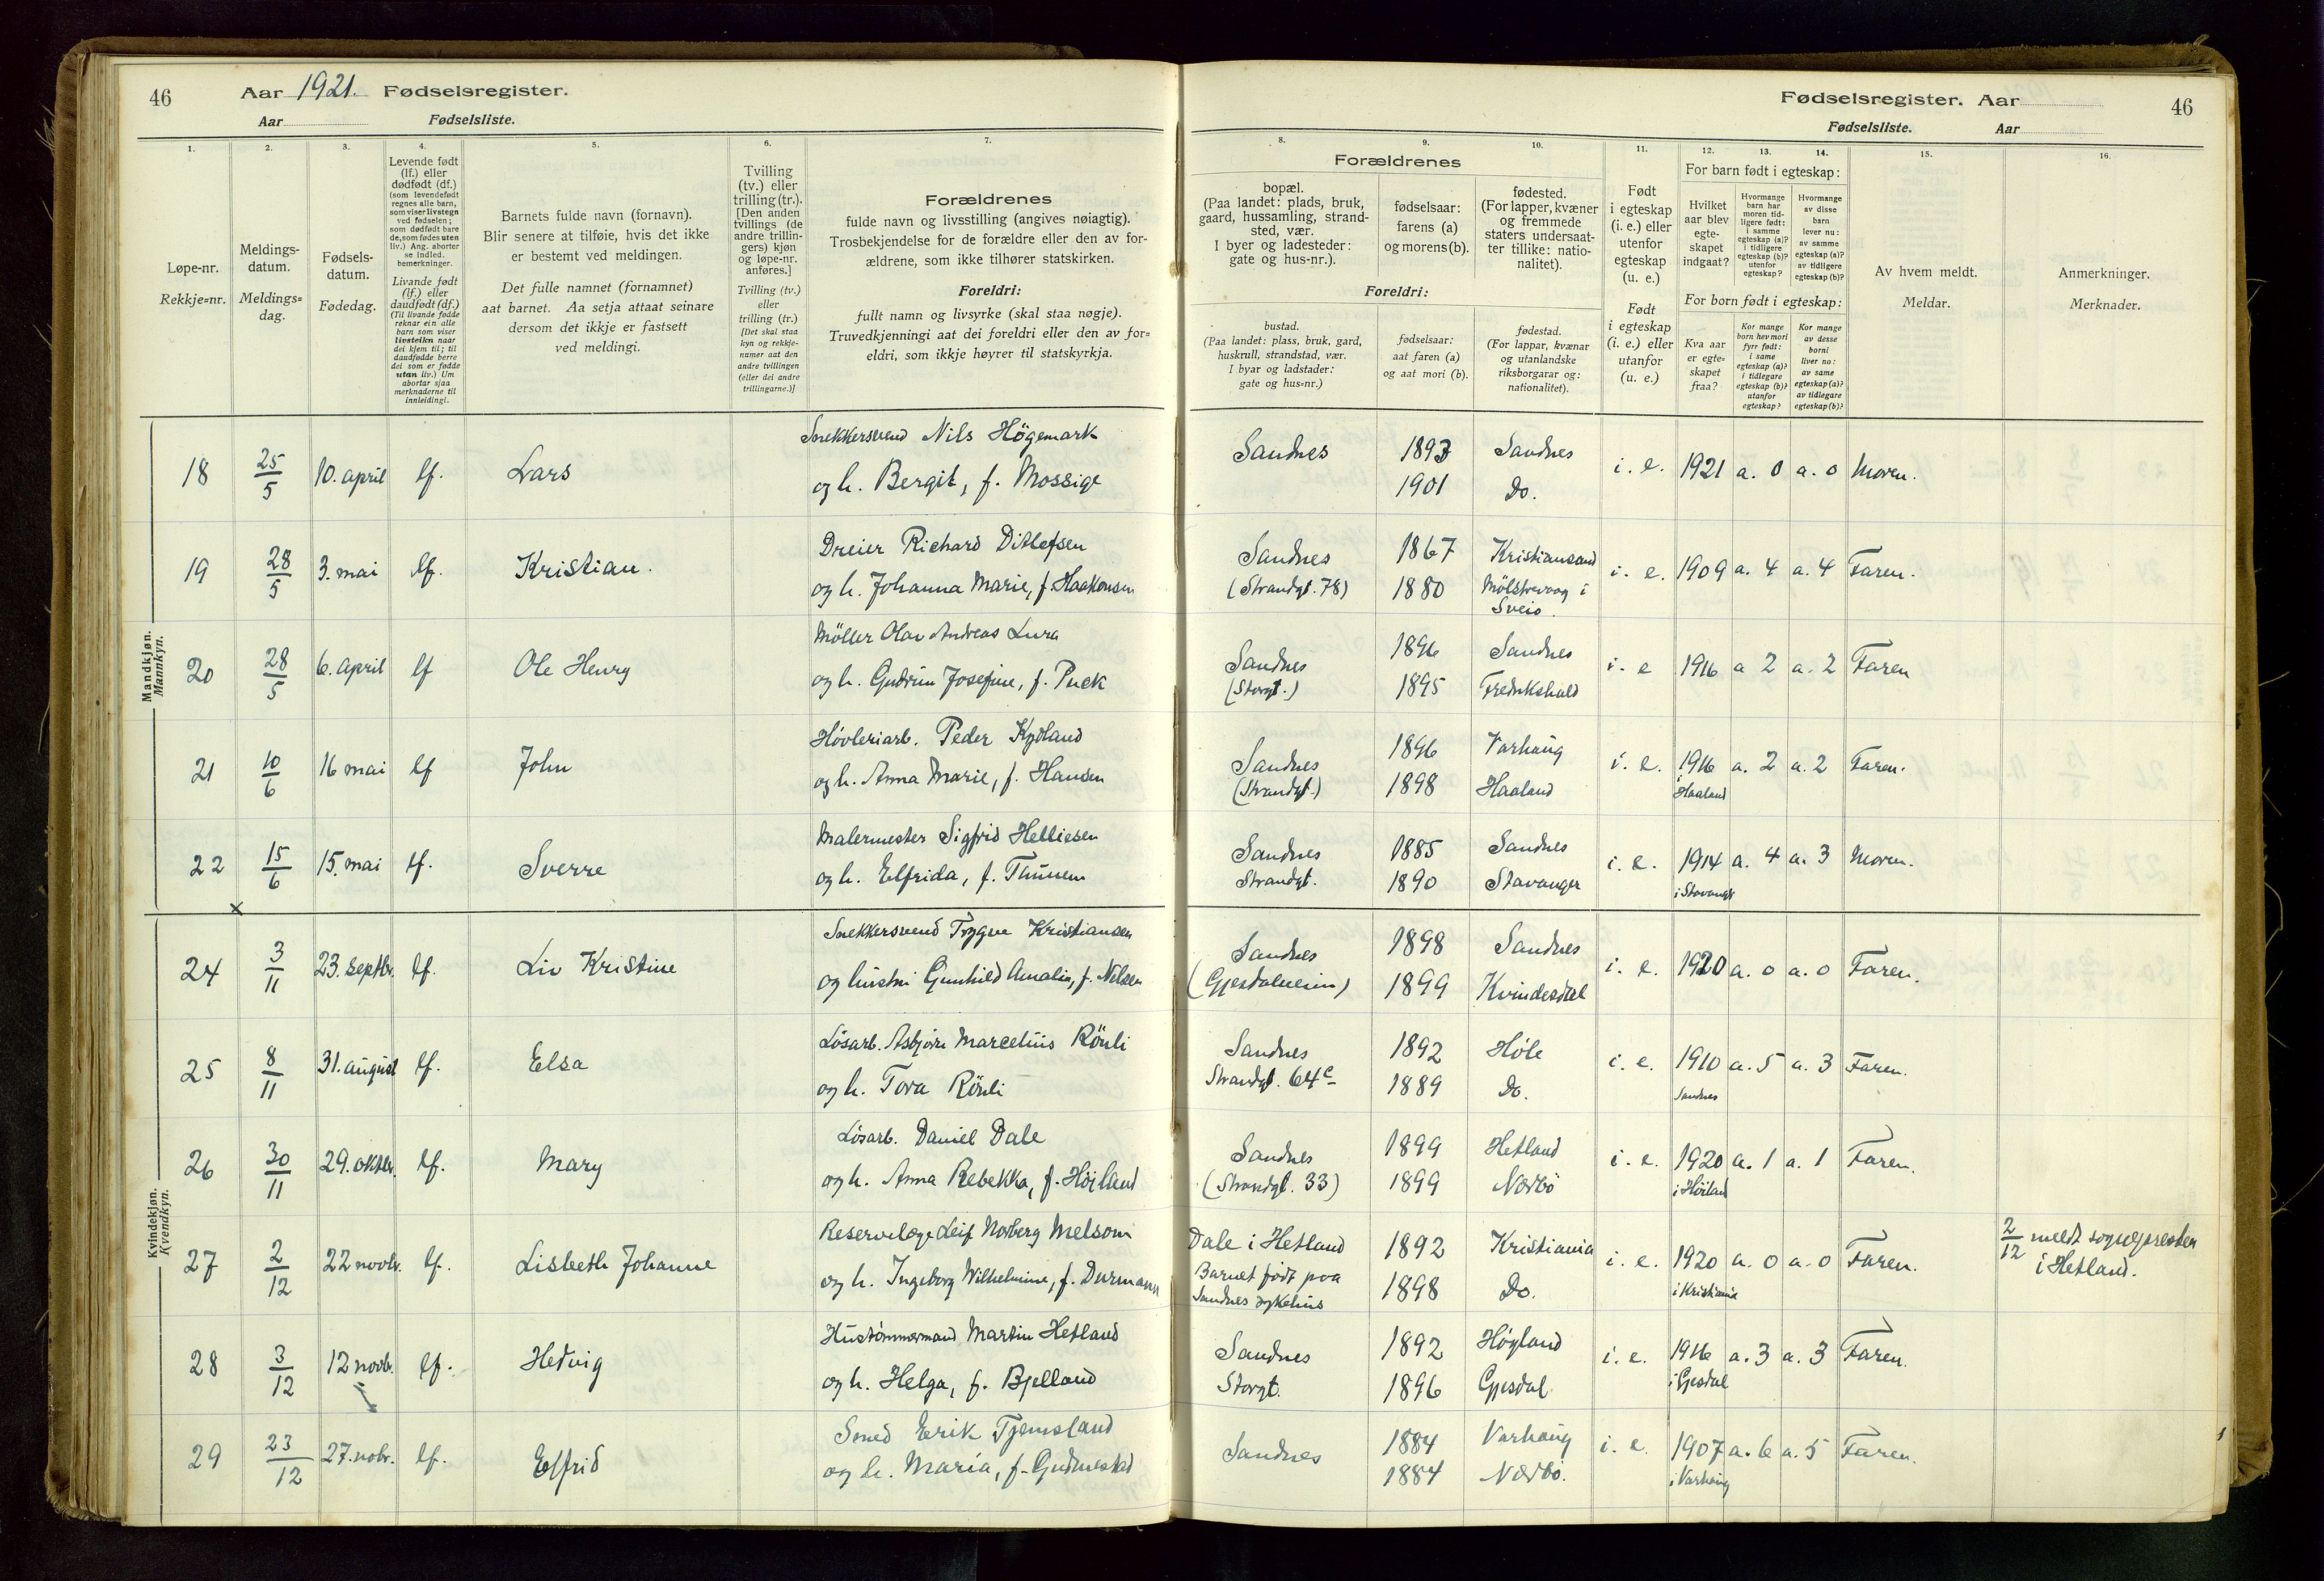 46
Aar 1921. Fødselsregister.
Aar Fødselsliste.
Fødselsregister. Aar
46
Fødselsliste. Aar
1.
Løpe-nr.
Rekkje=nr.
2.
Meldings-
datum.
Meldings=
dag.
3.
Fødsels-
datum.
Fødedag.
4.
Levende født
(lf.) eller
dødfødt (df.)
(som levendefødt
regnes alle barn,
som viser livstegn
ved fødselen;
som dødfødt bare
de, som fødes uten
liv.) Ang. aborter
se indled.
bemerkninger.
Livande født
(lf.) eller
daudfødt (df.)
(Til livande fødde
reknar ein alle
barn som viser
livsteikn naar
dei kjem til; til
daudfødde berre
dei som er fødde
utan liv.) Um
abortar sjaa
merknaderne til
innleidingi.
5.
Barnets fulde navn (fornavn).
Blir senere at tilføie, hvis det ikke
er bestemt ved meldingen.
Det fulle namnet (fornamnet)
aat barnet. Aa setja attaat seinare
dersom det ikkje er fastsett
ved meldingi.
6.
Tvilling
(tv.) eller
trilling (tr.).
[Den anden
tvillings (de
andre trillin-
gers) kjøn
og løpe-nr.
anføres.]
Tvilling (tv.)
eller
trilling (tr.)
[Det skal staa
kyn og rekkje-
numer aat den
andre tvillingen
(eller dei andre
trillingarne.)]
7.
Forældrenes
fulde navn og livsstilling (angives nøiagtig).
Trosbekjendelse for de forældre eller den av for-
ældrene, som ikke tilhører statskirken.
Foreldri:
fullt namn og livsyrke (skal staa nøgje).
Truvedkjenningi aat dei foreldri eller den av for=
eldri, som ikkje høyrer til statskyrkja.
8.
9.
10.
Forældrenes
bopæl.
(Paa landet: plads, bruk,
gaard, hussamling, strand-
sted, vær.
I byer og ladesteder:
gate og hus-nr.).
fødselsaar:
farens (a)
og morens (b).
fødested.
(For lapper, kvæner
og fremmede
staters undersaat-
ter tillike: natio-
nalitet).
Foreldri:
bustad.
(Paa landet: plass, bruk, gard,
huskrull, strandstad, vær.
I byar og ladstader:
gate og hus-nr.)
fødselsaar:
aat faren (a)
og aat mori (b).
fødestad.
(For lappar, kvænar
og utanlandske
riksborgarar og:
nationalitet).
11.
Født
i egteskap
(i. e.) eller
utenfor
egteskap
(u. e.)
Født
i egteskap
(i. e.) eller
utanfor
(u. e.)
12.
13.
14.
For barn født i egteskap:
Hvilket
aar blev
egte-
skapet
indgaat?
Hvormange
barn har
moren tid-
ligere født:
i samme
egteskap (a)?
i tidligere
egteskap (b)?
utenfor
egteskap?
Hvormange
av disse
barn
lever nu:
av samme
egteskap (a)?
av tidligere
egteskap (b)?
For born født i egteskap:
Kva aar
er egte-
skapet
fraa?
Kor mange
born hev mori
fyrr født:
i same
egteskap (a)?
i tidlegare
egteskap (b)?
utanfor
egteskap?
Kor mange
av desse
borni
liver no:
av same
egteskap (a)?
av tidlegare
egteskap (b)?
15.
Av hvem meldt.
Meldar.
16.
Anmerkninger.
Merknader.
Mandkjøn.
Mannkyn.
18 25/5 10. april lf. Lars Snekkersvend Nils Högemark Sandnes 1893 Sandnes i. e. 1921 a. 0 a. 0 Moren.
og h. Bergit, f. Mossige 1901 Do.
19 28/5 3. mai lf. Kristian. Dreier Richard Ditlefsen Sandnes 1867 Kristiansand i. e. 1909 a. 4 a. 4 Faren.
og h. Johanna Marie, f. Haakonsen (Strandgt. 78) 1880 Mölstrevaag i
Sveio.
20 28/5 6. april lf Ole Henry Möller Olav Andreas Lura Sandnes 1896 Sandnes i. e 1916 a 2 a. 2 Faren
og h. Gudrun Josefine, f. Puck (Storgt.) 1895 Fredrikshald
21 10/6 16 mai lf John Høvleriarb. Peder Kydland Sandnes 1896 Varhaug i. e. 1916 a. 2 a. 2 Faren.
og h. Anna Marie, f. Hansen (Strandgt.) 1898 Haaland i Haaland
22 15/6 15. mai lf. Sverre Malermester Sigfrid Helliesen Sandnes 1885 Sandnes i. e. 1914 a. 4 a. 3 Moren.
og h. Elfrida, f. Thunem Strandgt. 1890 Stavanger i Stavanger
x
Kvindekjøn.
Kvendkyn.
24 3/11 23. septbr. lf. Liv Kristine Snekkersvend Trygve Kristiansen Sandnes 1898 Sandnes i. e. 1920 a. 0 a. 0 Faren.
og hustru Gunhild Amalia, f. Nilsen (Gjesdalveien) 1899 Kvindesdal
25 8/11 31. august lf. Elsa Løsarb. Asbjørn Marcelius Rönli Sandnes 1892 Høle i. e. 1910 a. 5 a. 3 Faren.
og h. Tora Rönli Strandgt. 64c 1889 Do. Sandnes
26 30/11 29. oktbr. lf. Mary Løsarb. Daniel Dale Sandnes 1899 Hetland i. e. 1920 a. 1 a. 1 Faren.
og h. Anna Rebekka, f. Höiland (Strandgt. 33) 1899 Nærbö i Höiland
27 2/12 22 novbr. lf. Lisbeth Johanne Reservelæge Leif Norberg Melsom Dale i Hetland 1892 Kristiania i. e. 1920 a. 0 a. 0 Faren. 2/12 meldt sognepresten
og h. Ingeborg Wilhelmine, f. Durmann Barnet født paa 1898 Do. i Kristiania i Hetland.
Sandnes sykehus
28 3/12 12 novbr. lf. Hedvig Hustömmermand Martin Hetland Sandnes 1892 Høyland i. e. 1916 a. 3 a. 3 Faren.
og h. Helga, f. Bjelland Storgt. 1896 Gjesdal i Gjesdal
29 23/12 27. nobr. lf. Elfrid Smed Erik Tjemsland Sandnes 1884 Varhaug i. e. 1907 a. 6 a. 5 Faren.
og h. Maria, f. Gudmestad 1884 Nærbö. i Varhaug